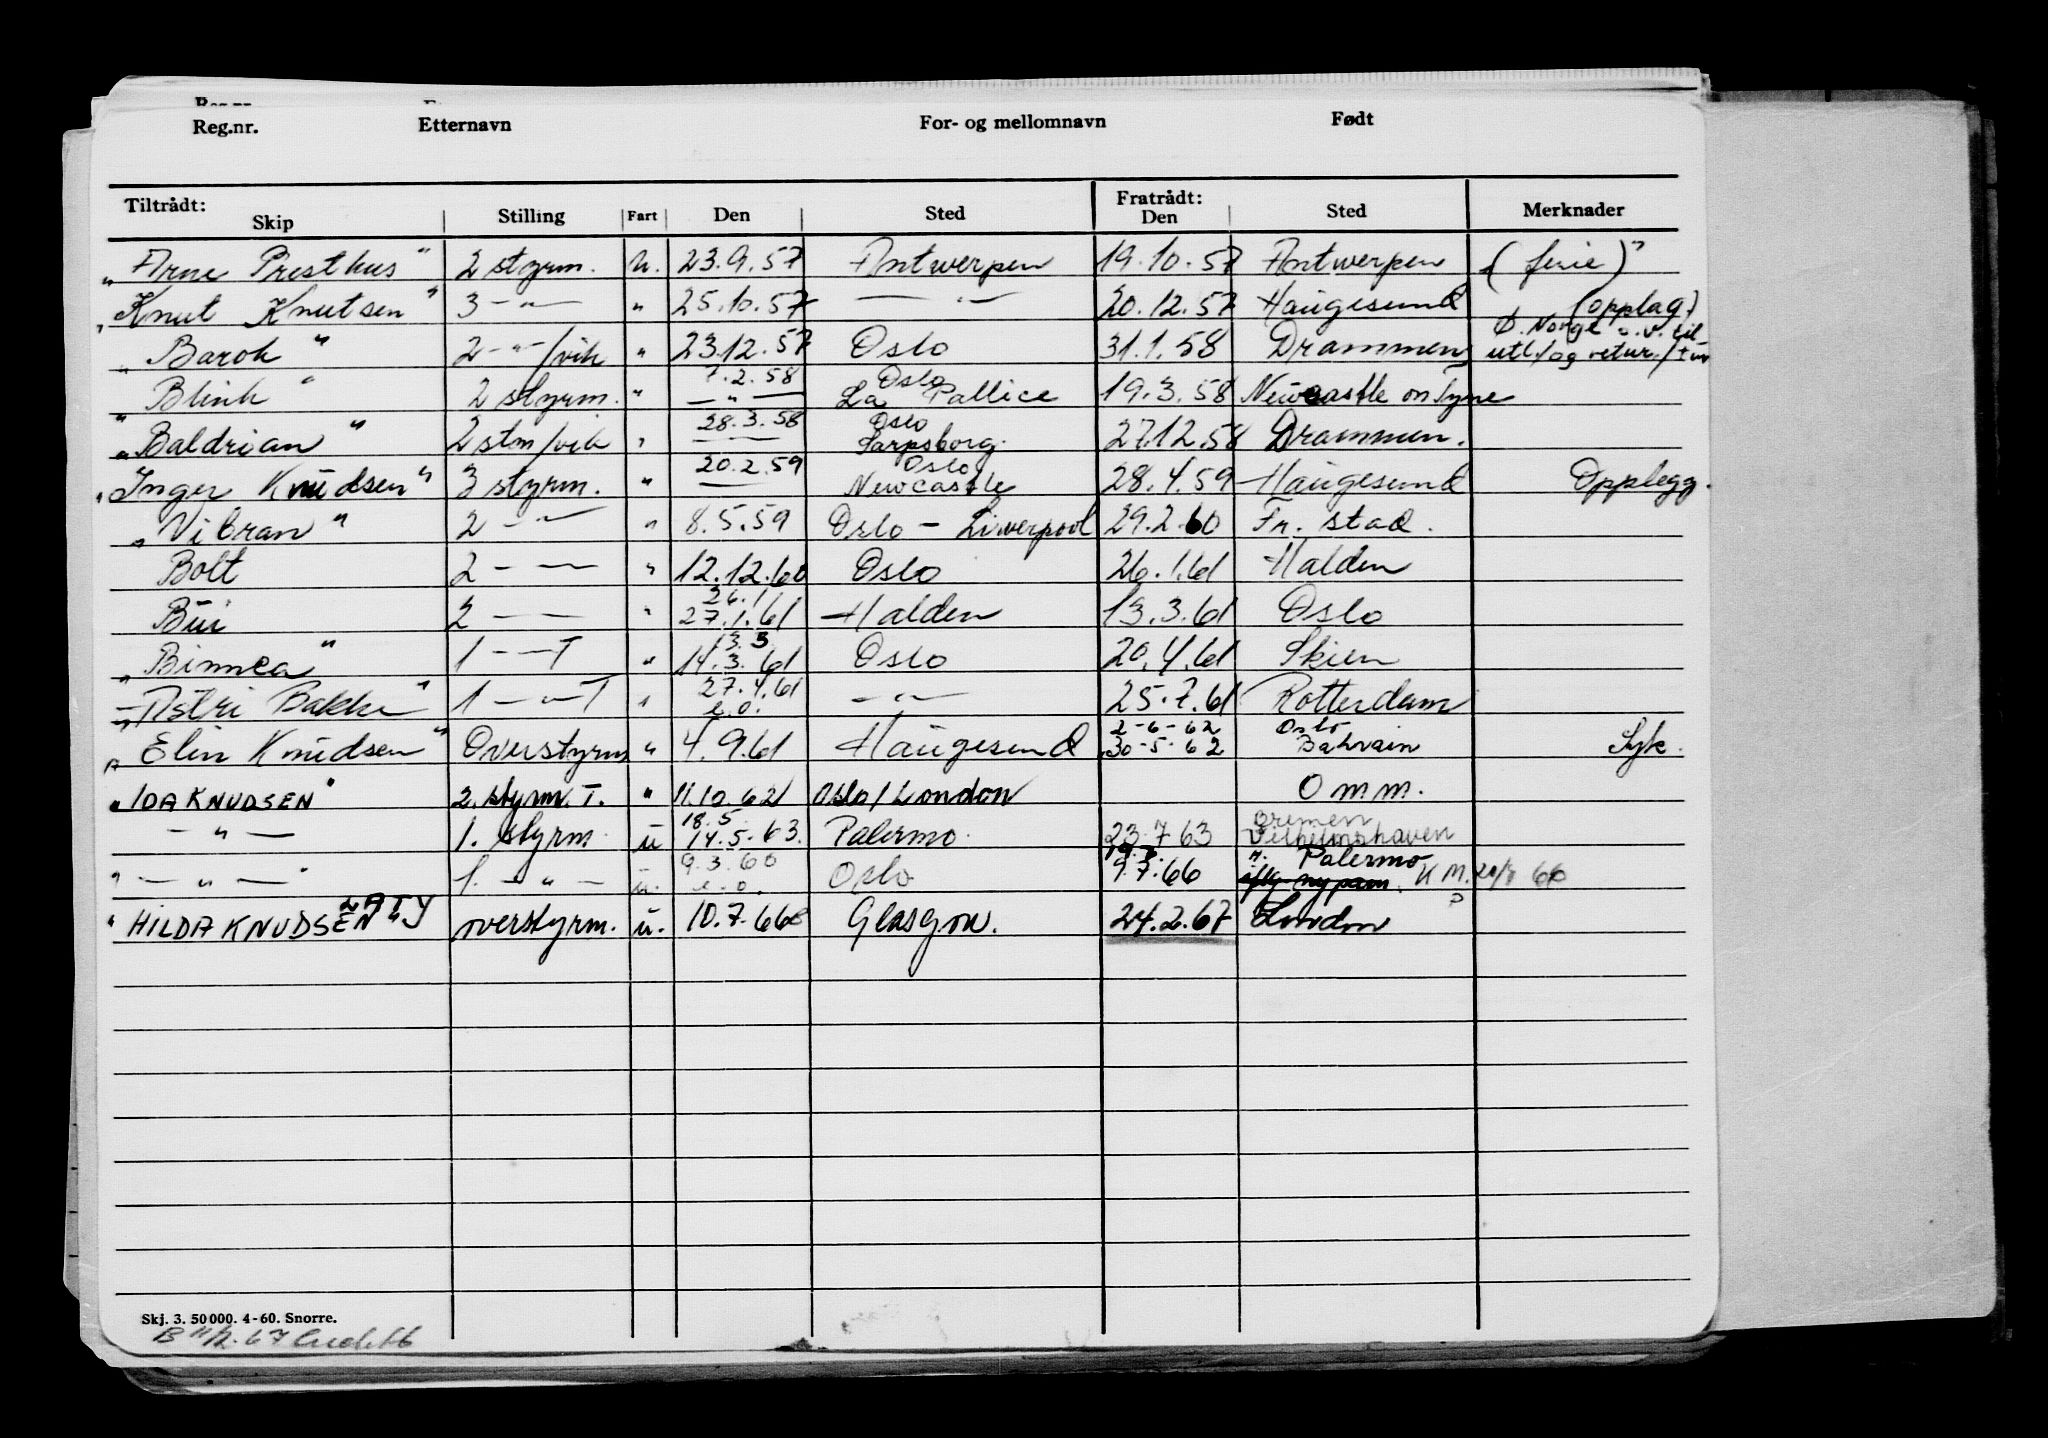 Reg.nr. Etternavn For- og mellomnavn Født
Tiltrådt: Skip Stilling Fart Den Sted Fratrådt: Den Sted Merknader
"Arne Presthus" 2 styrm. u. 23.9.57 Antwerpen 19.10.57 Antwerpen (ferie)
"Knut Knutsen" 3 - " - " 25.10.57 - " - 20.12.57 Haugesund (opplag)
"Barok" 2 - " - /vik " 23.12.57 Oslo 31.1.58 Drammen Norge utl./og retur.
"Blink" 2 styrm. " 7.2.58 - " - Oslo La Pallice 19.3.58 Newcastle on Tyne
"Baldrian" 2 stm/vik " 28.3.58 Oslo Sarpsborg. 27.12.58 Drammen.
"Inger Knudsen" 3 styrm. " 20.2.59 Oslo Newcastle 28.4.59 Haugesund Opplegg.
"Vibran" 2 - " - " 8.5.59 Oslo - Liverpool 29.2.60 Fr. stad.
Bolt 2 - " - " 12.12.60 Oslo 26.1.61 Halden
Bui 2 - " - " 26.1 27.1.61 Halden 13.3.61 Oslo
"Binnea" 1 - " - T " 13.3 14.3.61 Oslo 20.4.61 Skien
"Astri Bakke" 1 - " - T " 27.4.61 e.o. - " - 25.7.61 Rotterdam
"Elin Knudsen" Overstyrm " 4.9.61 Haugesund 2-6-62 30-5-62 Oslo Bahrain Syk.
"IDA KNUDSEN" 2. styrm. T. " 11.10.62 Oslo/London Omm.
- " - 1. styrm. u 18.5. 14.5.63. Palermo. 23.7 63 Bremen Vilhelmshaven
" - " - " 1. - " - u. 9.3.60 e.o. Oslo 9.7.66 Palermo ny pam. K M.
"HILDA KNUDSEN" overstyrm. u. 10.7.66 Glasgow. 24.2.67 London
Skj. 3. 50000. 4-60. Snorre.